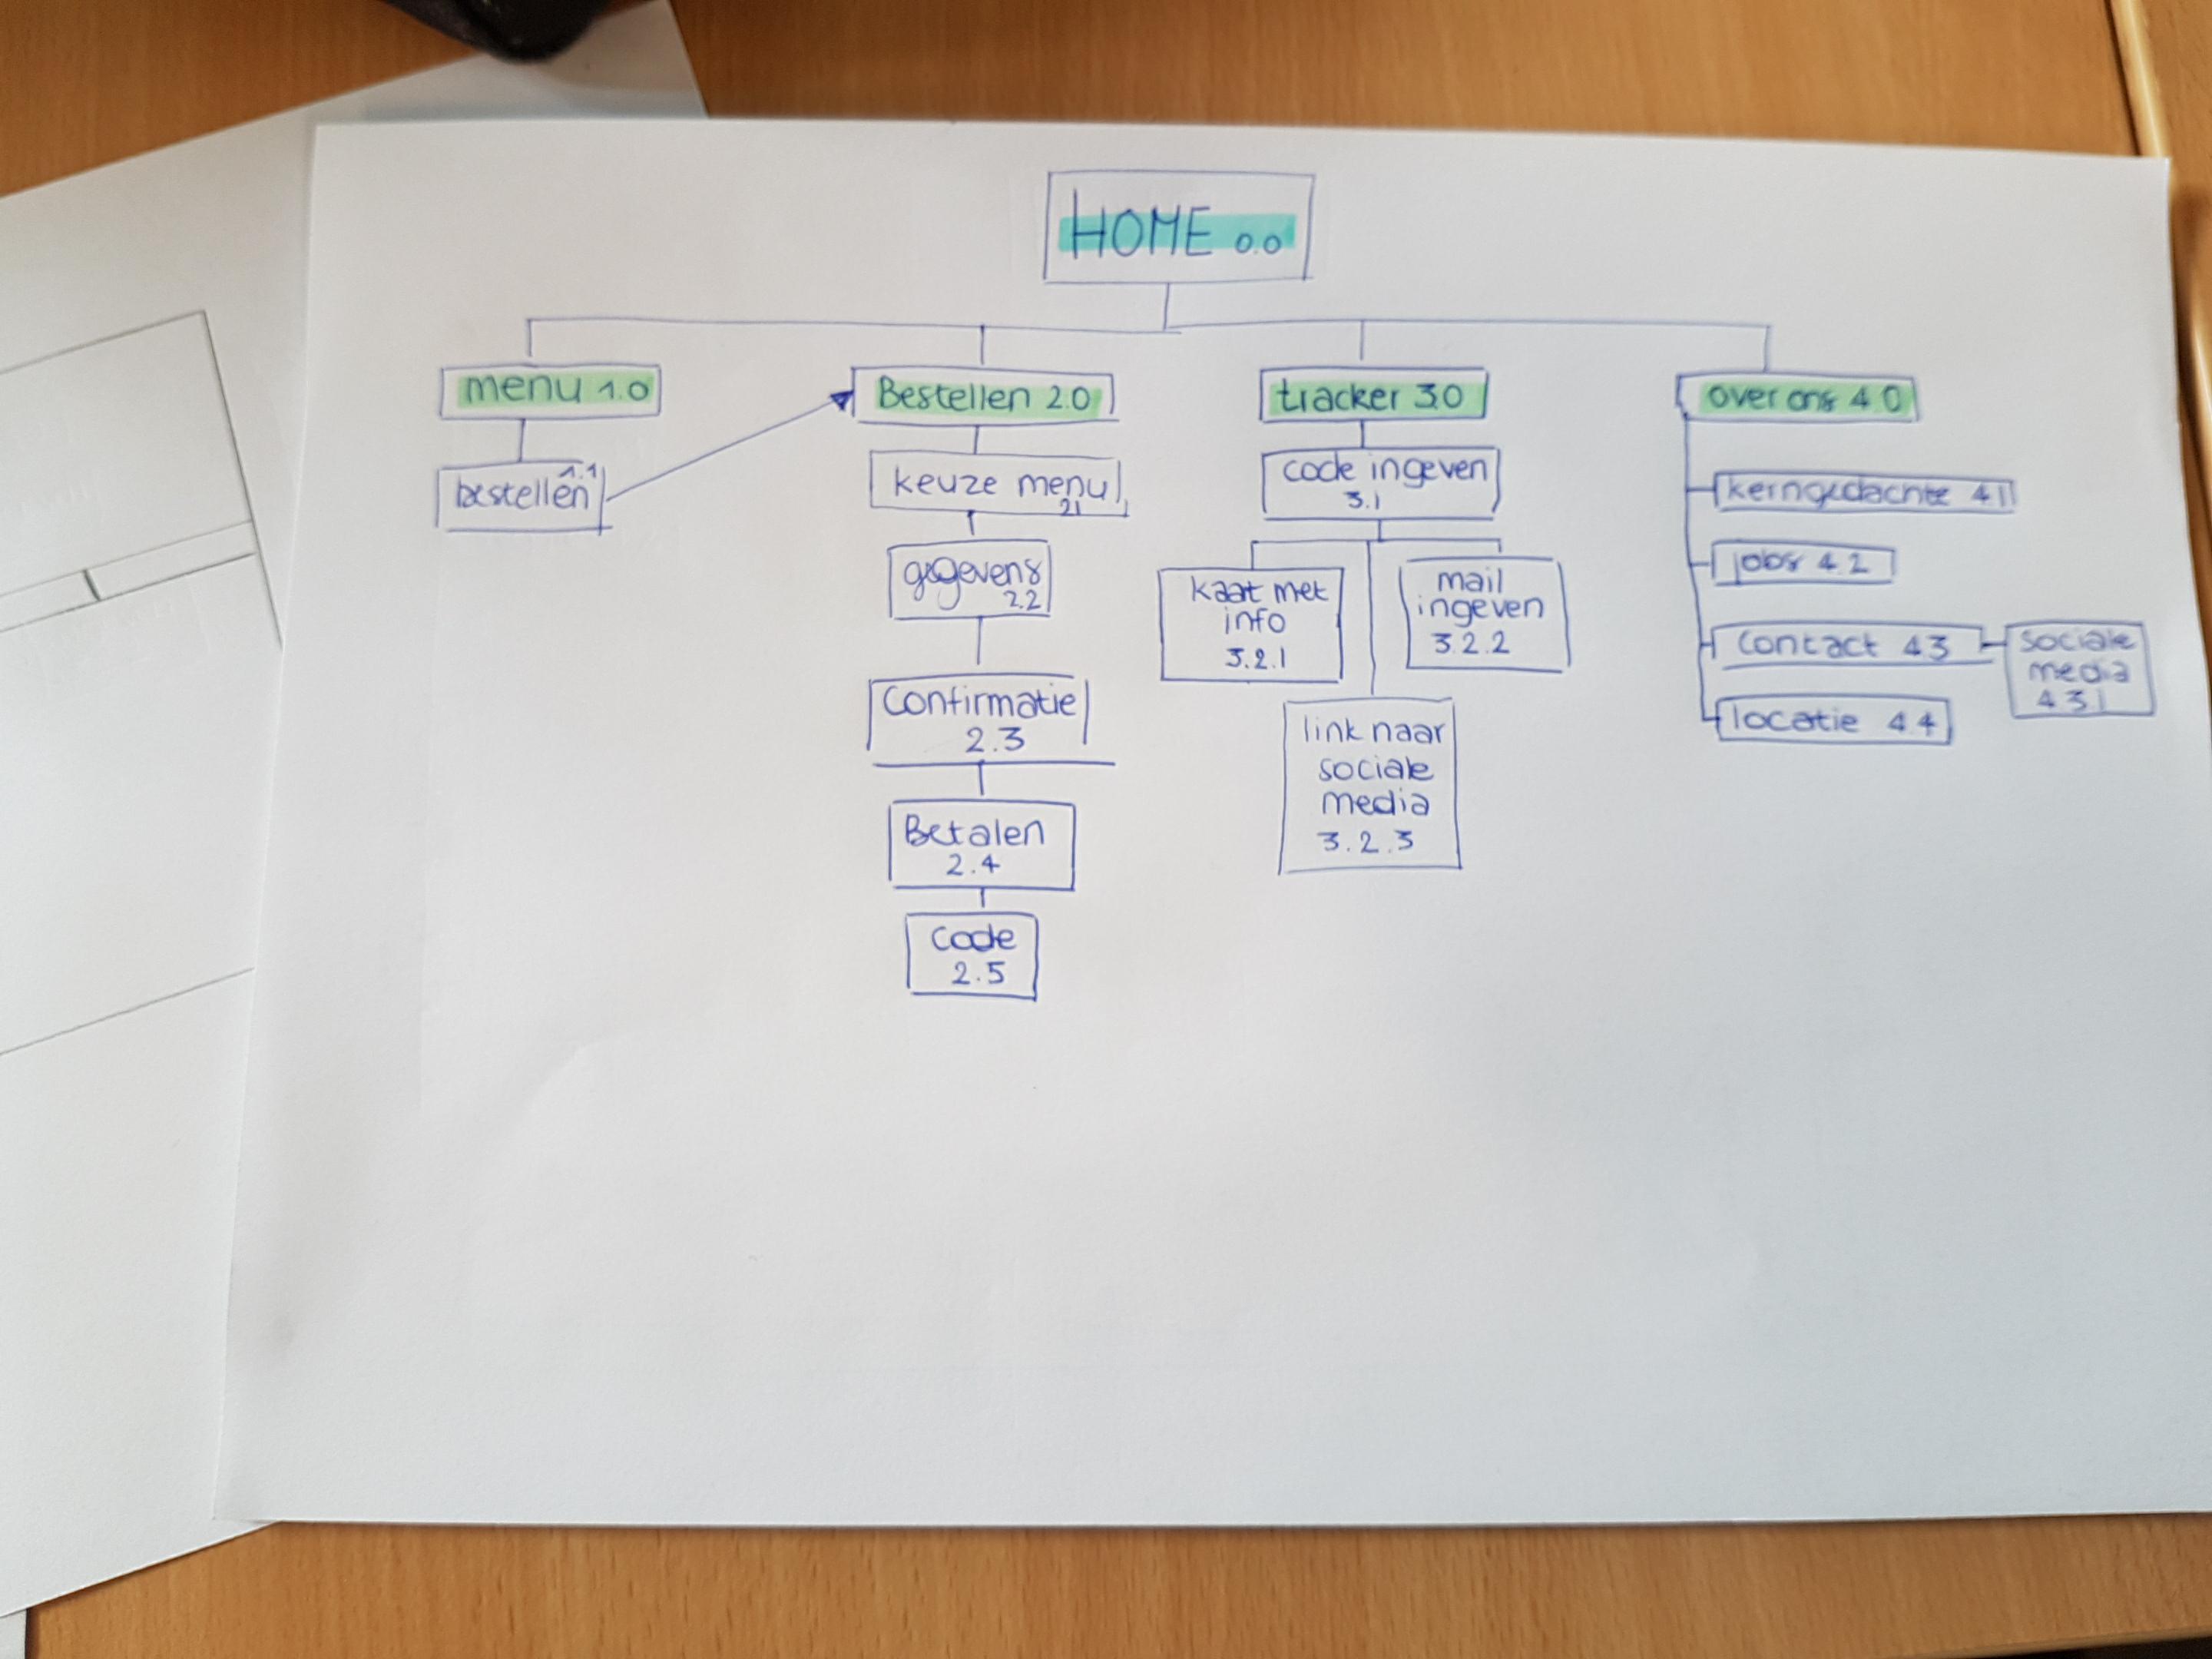 HOME 0.0
menu 1.0
Bestellen 2.0
tracker 3.0
over ons 4.0
1.1
bestellen
keuze menu
2.1
gegevens
2.2
Confirmatie
2.3
Betalen
2.4
Code
2.5
code ingeven
3.1
kaart met
info
3.2.1
mail
ingeven
3.2.2
link naar
sociale
media
3.2.3
kerngedachte 4.1
jobs 4.2
Contact 4.3
sociale
media
4.3.1
locatie 4.4